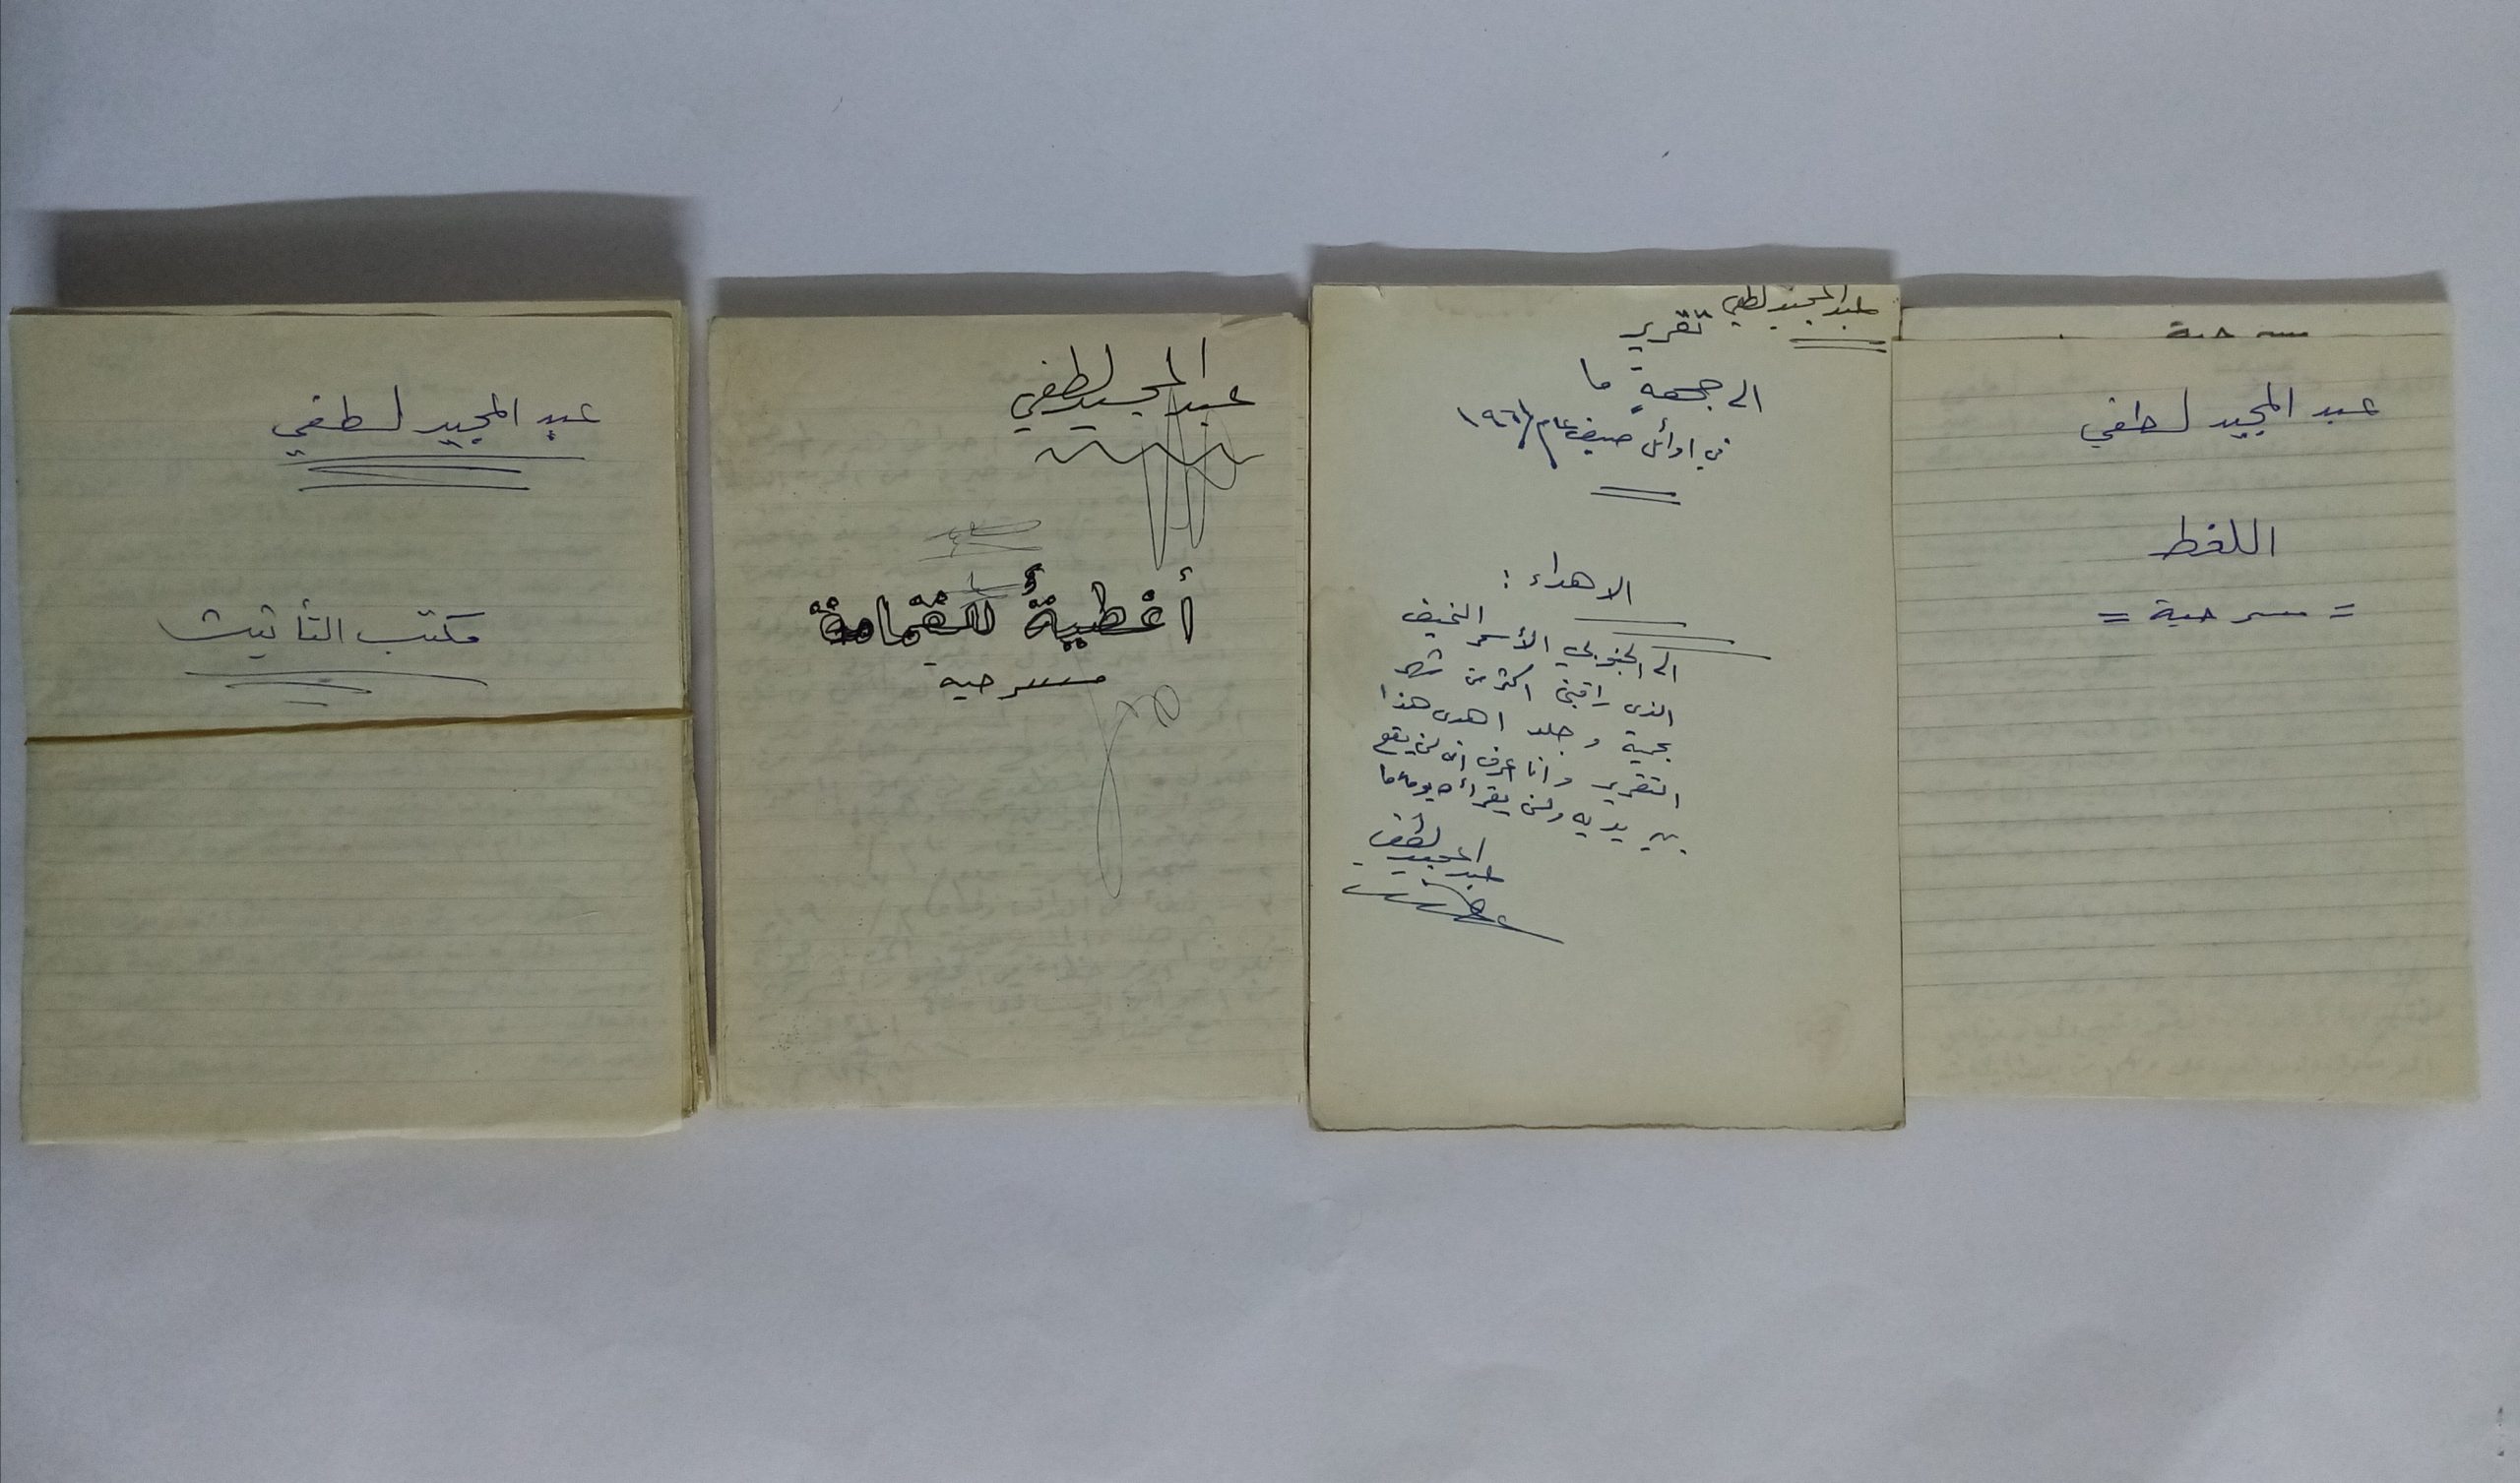 عبد المجيد لطفي
مكتب التأثيث
عبد المجيد لطفي
أغطيةٌ للقمامة
مسرحية
عبد المجيد لطفي
تقرير
الى جهةٍ ما
في اوائل صيف عام ١٩٦١
الاهداء :
الى الجنوبي الأسمر النحيف
الذي راقبني اكثر من شهر
بحمية وجلد اهدي هذا
التقرير وانا اعرف انه لن يقع
بين يديه ولن يقرأه يوما ما
عبد المجيد لطفي
مسرحية
عبد المجيد لطفي
اللغط
= مسرحية =